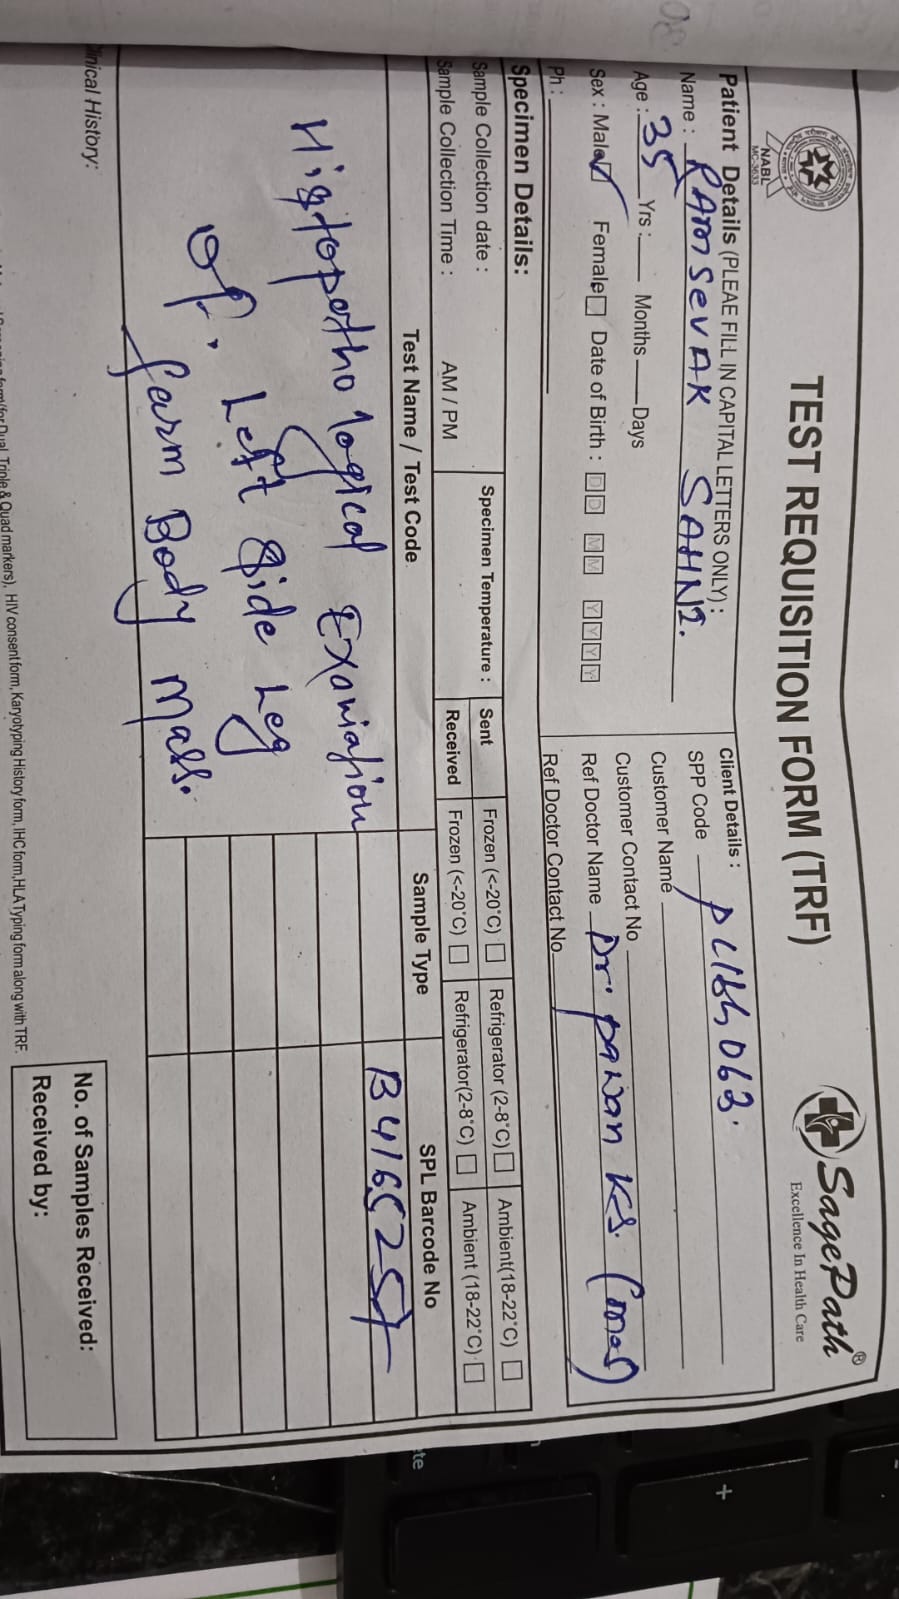 TEST REQUISITION FORM (TRF)
NABL
MC-3633
SagePath®
Excellence In Health Care
Patient Details (PLEAE FILL IN CAPITAL LETTERS ONLY) :
Name : RAmSevAK SAHNI.
Age : 35 Yrs : Months Days
Sex : Male ✓ Female Date of Birth : D D M M Y Y Y Y
Ph :
Client Details :
SPP Code
Customer Name
Customer Contact No
Ref Doctor Name Dr. pawan
Ref Doctor Contact No
Specimen Details:
Sample Collection date :
Sample Collection Time : AM / PM
Specimen Temperature :
Sent Frozen (<-20°C) Refrigerator (2-8°C) Ambient(18-22°C)
Received Frozen (<-20°C) Refrigerator(2-8°C) Ambient (18-22°C)
Test Name / Test Code Sample Type SPL Barcode No
Histopathological Examiation
of. Left Side Leg
farm Body mass.
linical History:
No. of Samples Received:
Received by:
Triple & Quad markers), HIV consent form, Karyotyping History form, IHC form, HLA Typing form along with TRF.
+